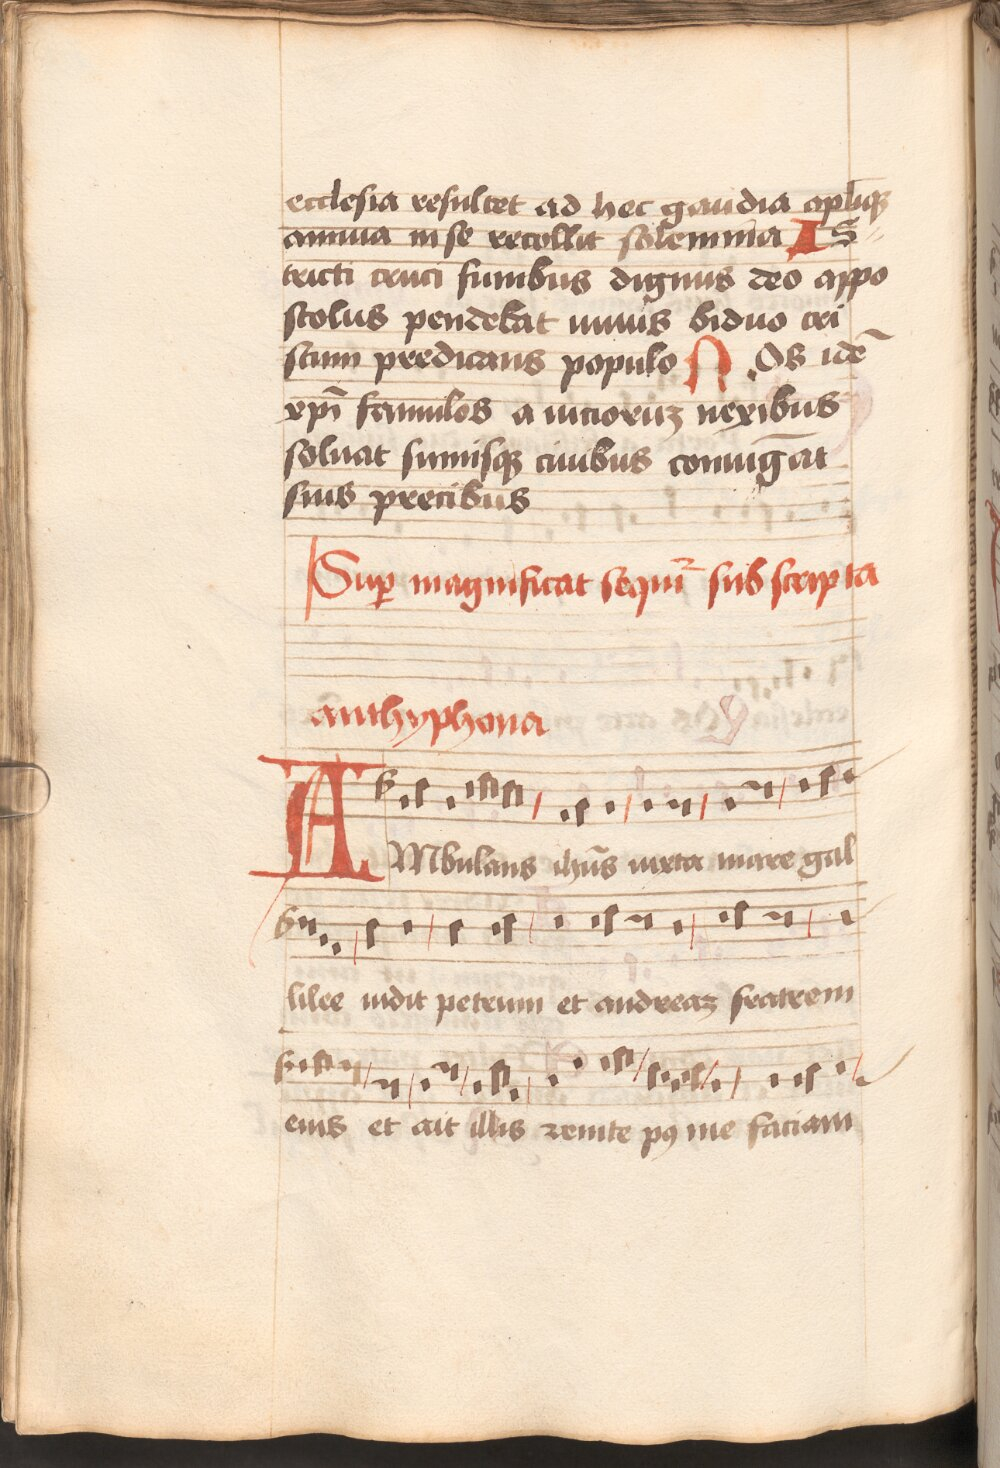 ecclesia resultet ad hec gaudia aplicꝫ
annua in se recollit solemnia IS
tricti cruci funibus dignus deo appo
stolus pendebat unius biduo cri
stum predicans populo NOS idē
xpī famulos a vicioruꝫ nexibus
soluat sumisqꝫ ciuibus coniuḡat
suis precibus
Suꝑ magnificat sequiᷣ sub scripta
anthyphona
AMbulans ihūs iuxta mare gal
lilee vidit petrum et andreaꝫ fratrem
eius et ait illis venite pꝰ me faciam